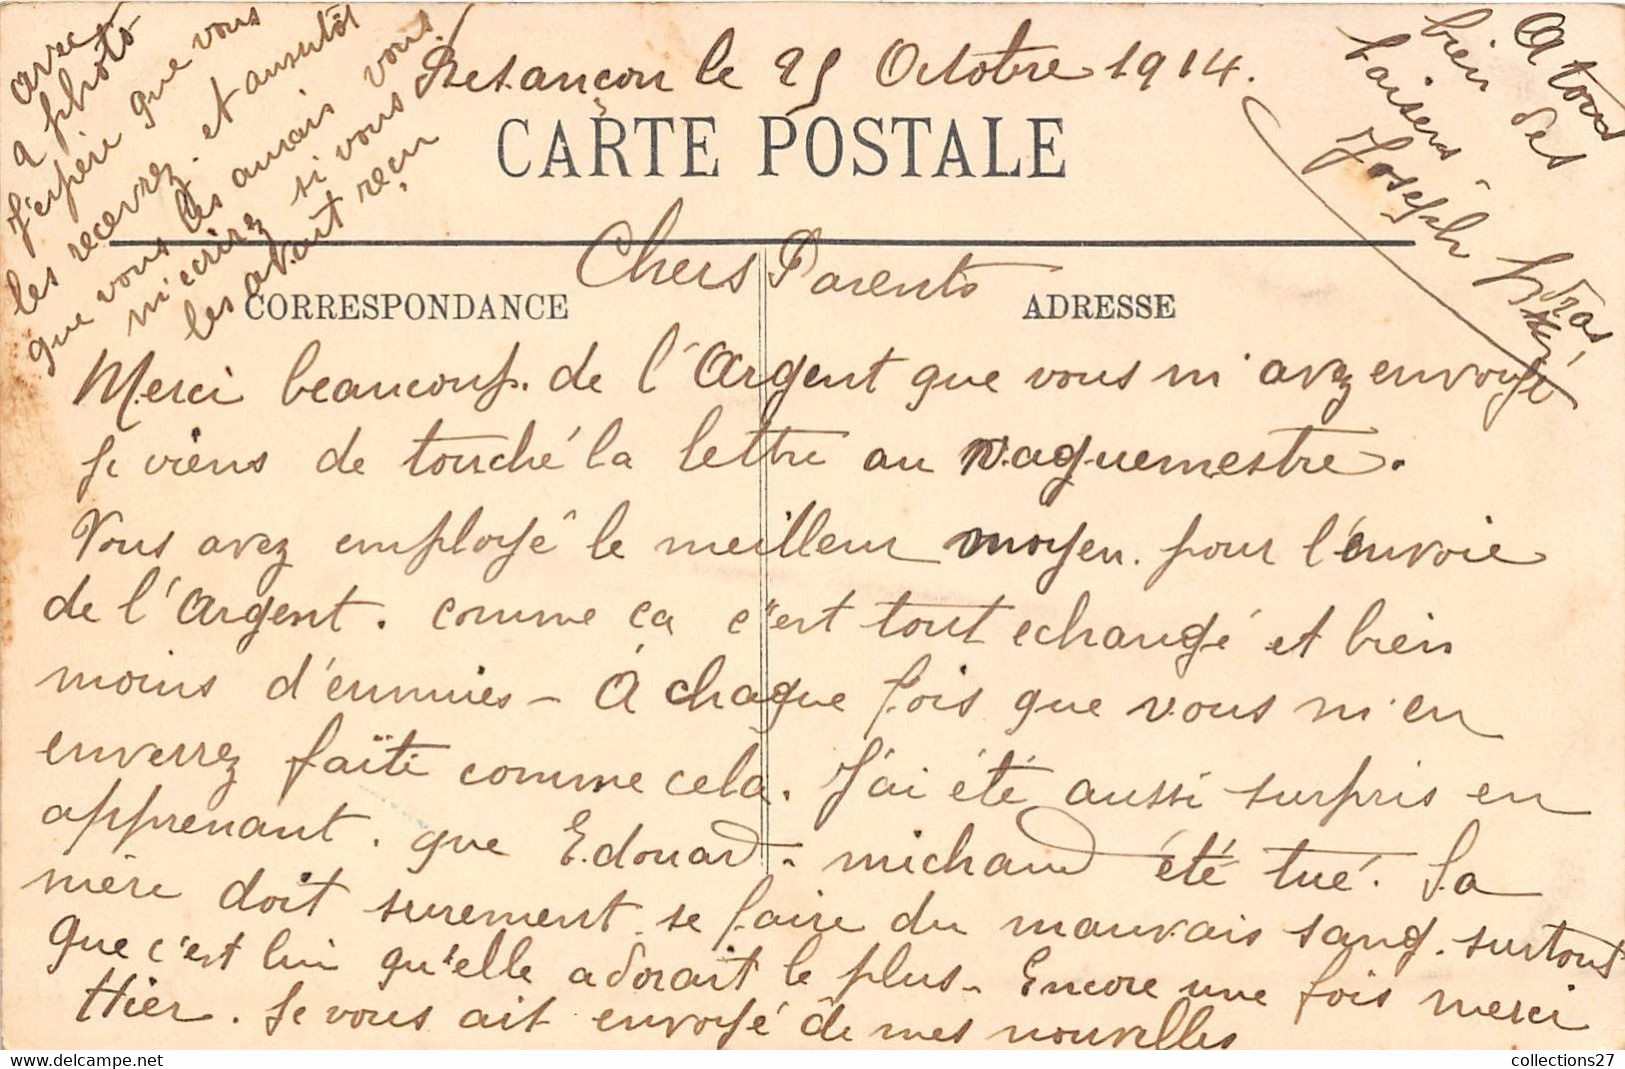 Besançon le 25 Octobre 1914.
CARTE POSTALE
Chers Parents
CORRESPONDANCE
ADRESSE
Merci beaucoup. de l'Argent que vous m'avez envoyé
je viens de touché la lettre au vaguemestre.
Vous avez employé le meilleur moyen. pour l'envoie
de l'Argent. comme ça c'est tout echangé et bien
moins d'ennuies - A chaque fois que vous m'en
enverrez faite comme cela. J'ai été aussi surpris en
apprenant. que Edouard. michaud été tué. Sa
mère doit surement. se faire du mauvais sang. surtout
que c'est lui qu'elle adorait le plus - Encore une fois merci
Hier. Je vous ait envoyé de mes nouvelles
avec
2 photo
J'espère que vous
les recevrez. et aussitôt
que vous les aurais vous
m'ecrirez si vous
les avait reçu
A tous
bien des
baisers
Joseph
collections27